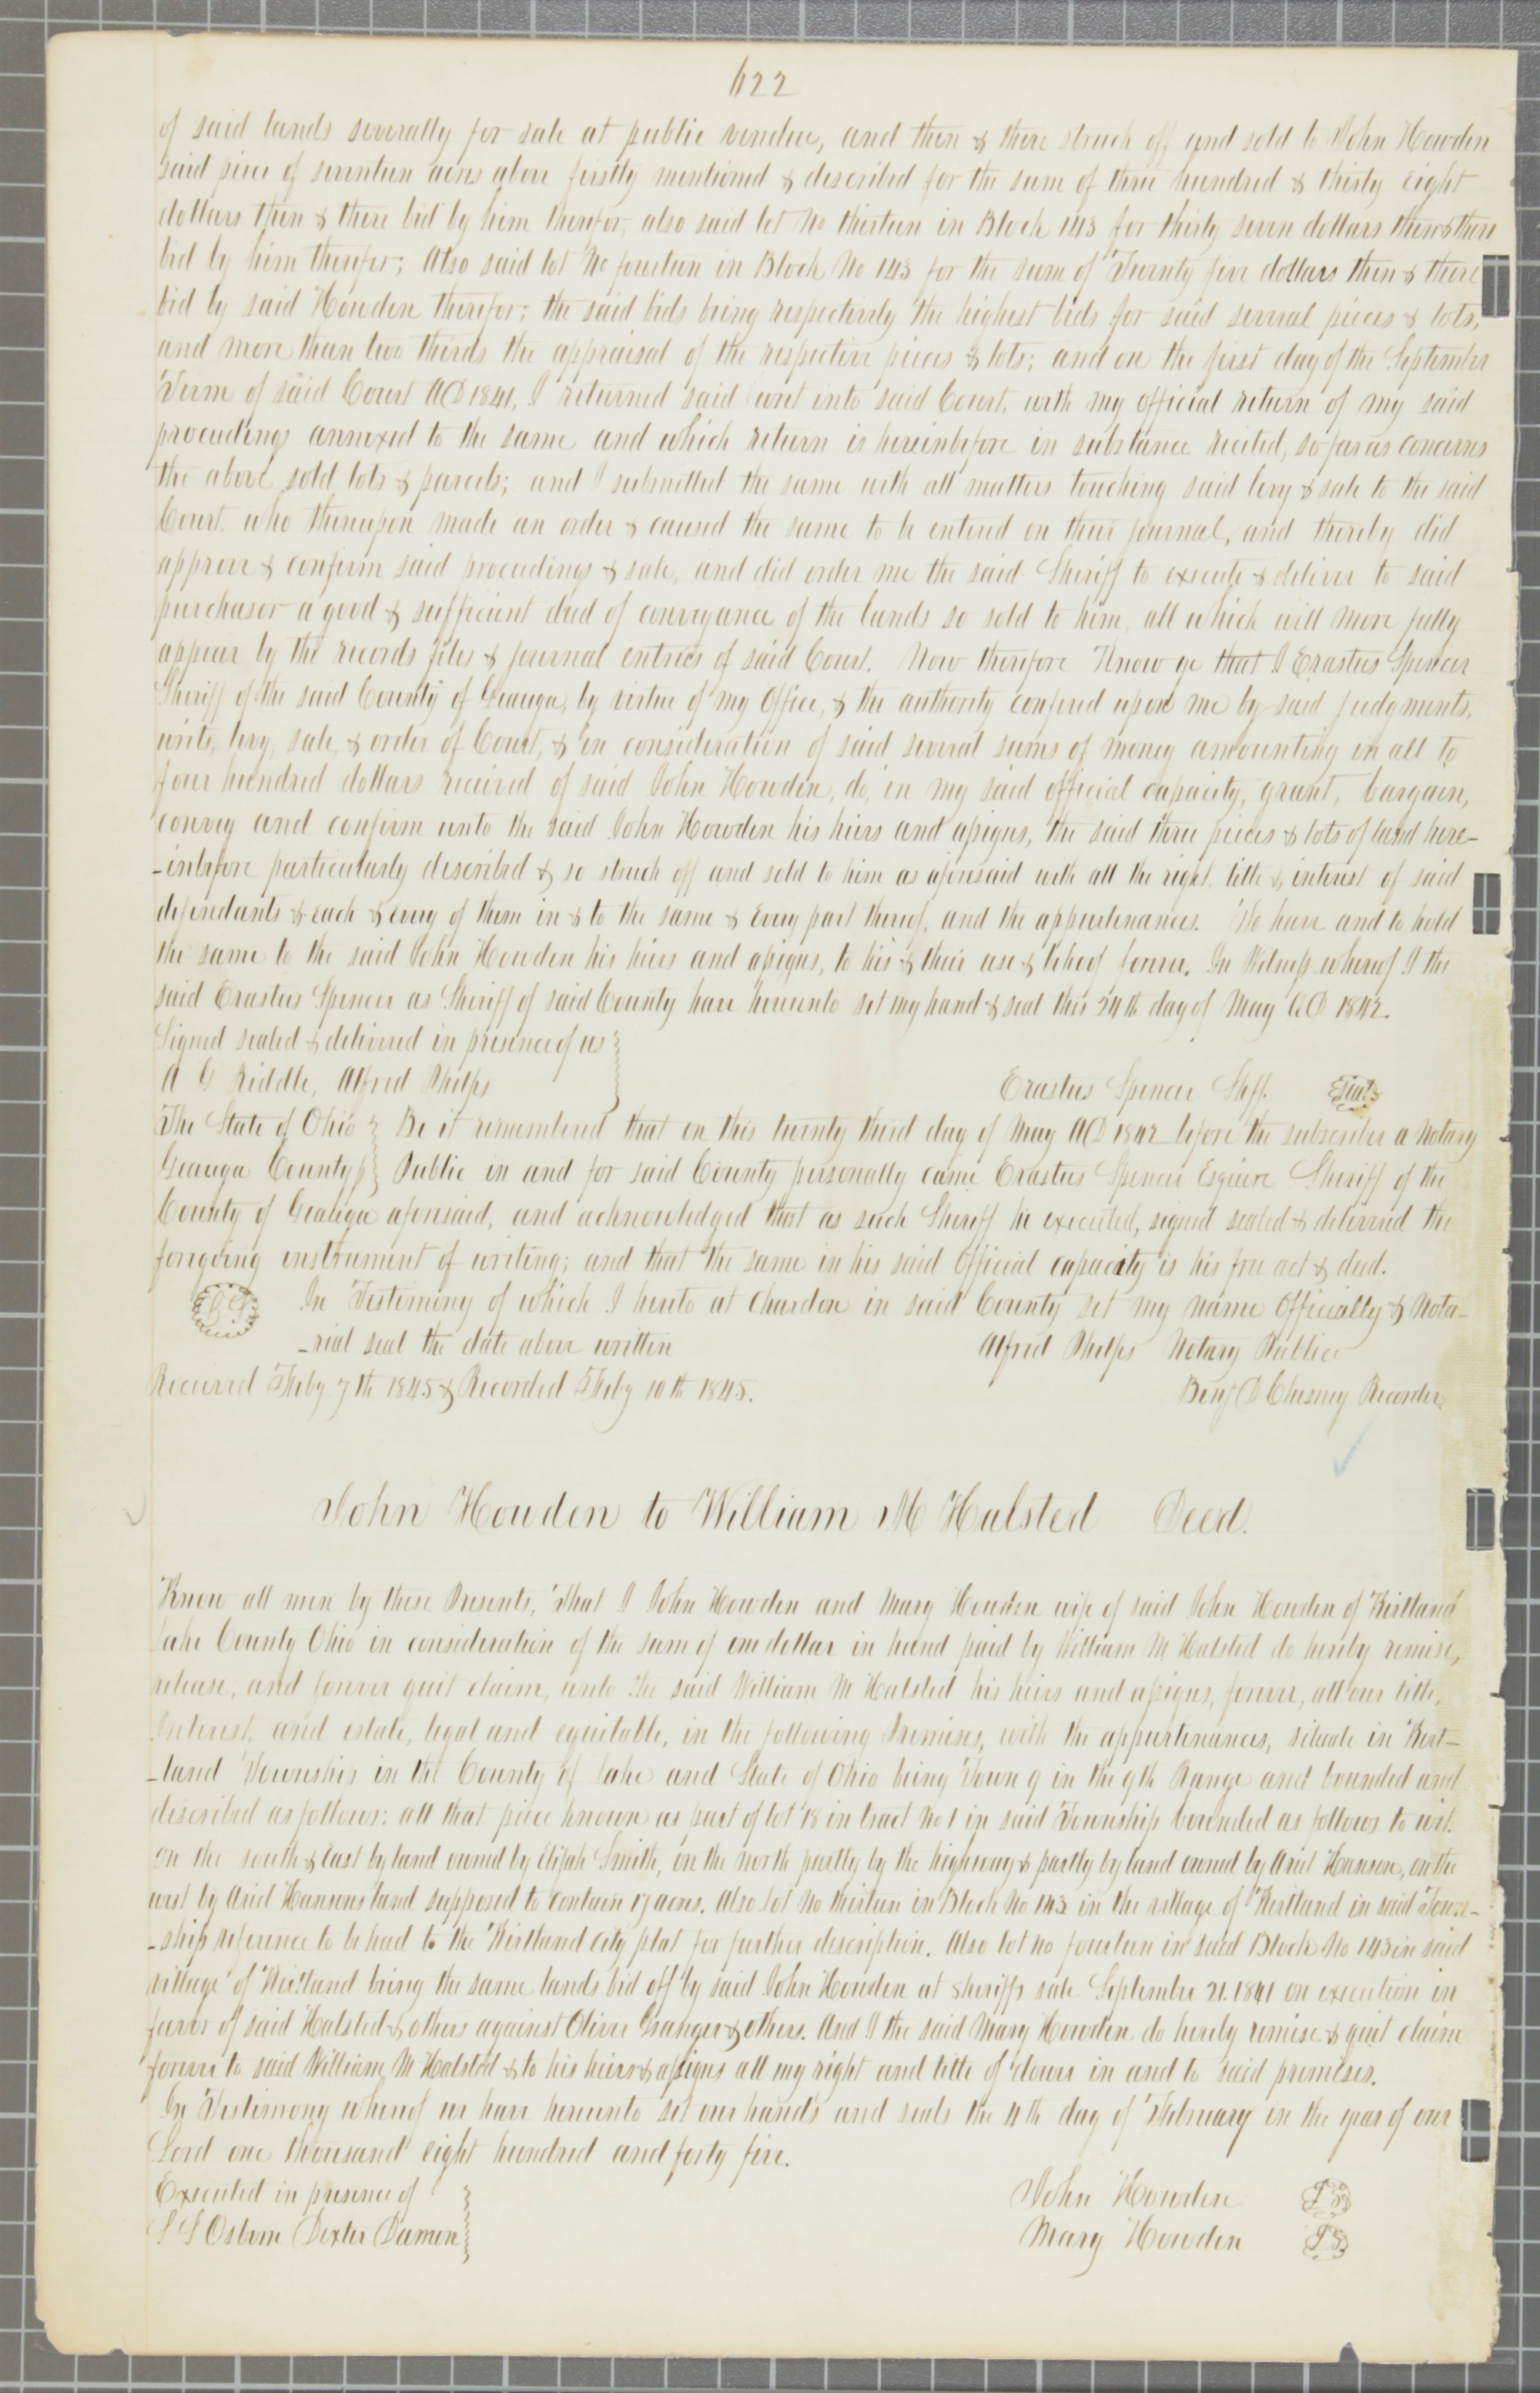 622
of said lands severally for sale at public vendue, and then & there struck off and sold to John Howden
said piece of seventeen acres above firstly mentioned & described for the sum of three hundred & thirty eight
dollars then & there bid by him therefor; also said lot No thirteen in Block 143 for thirty seven dollars then & there
bid by him therefor; Also said lot No fourteen in Block No 143 for the sum of Twenty five dollars then & there
bid by said Howden therefor; the said bids being respectively the highest bids for said several pieces & lots,
and more than two thirds the appraisal of the respective pieces & lots; and on the first day of the September
Term of said Court AD 1841, I returned said writ into said Court, with my official return of my said
proceedings annexed to the same and which return is hereinbefore in substance recited, so far as concerns
the above sold lots & parcels; and I submitted the same with all matters touching said levy & sale to the said
Court. who thereupon made an order & caused the same to be entered on their journal, and thereby did
approve & confirm said proceedings & sale, and did order me the said Sheriff to execute & deliver to said
purchasor a good & sufficient deed of conveyance of the lands so sold to him. all which will more fully
appear by the records files & journal entries of said Court. Now therefore Know ye that I Erastus Spencer
Sheriff of the said County of Geauga, by virtue of my Office, & the authority confered upon me by said judgments,
writs, levy, sale, & order of Court, & in consideration of said several sums of money amounting in all to
four hundred dollars received of said John Howden, do, in my said official capacity, grant, bargain,
convey and confirm unto the said John Howden his heirs and assigns, the said three pieces & lots of land here-
-inbefore particularly described & so struck off and sold to him as aforesaid with all the right, title & interest of said
defendants & each & every of them in & to the same & every part thereof, and the appurtenances. To have and to hold
the same to the said John Howden his heirs and assigns, to his & their use & behoof forever. In Witness whereof I the
said Erastus Spencer as Sheriff of said County have hereunto set my hand & seal this 24th day of May AD 1842.
Signed sealed & delivered in presence of us
A G Riddle, Alfred Phelps
Erastus Spencer Shff. Seal
The State of Ohio Be it remembered that on this twenty third day of May AD 1842 before the subscriber a Notary
Geauga County Public in and for said County personally came Erastus Spencer Esquire Sheriff of the
County of Geauga aforesaid, and acknowledged that as such Sheriff he executed, signed sealed & delivered the
foregoing instrument of writing; and that the same in his said Official capacity is his free act & deed.
In Testimony of which I hereto at Chardon in said County set my name Officially & Nota-
-rial seal the date above written Alfred Phelps Notary Public
Received Feby 7th 1845 & Recorded Feby 10th 1845. Benj D Chesney Recorder
John Howden to William M Halsted Deed.
Know all men by these Presents, That I John Howden and Mary Howden wife of said John Howden of Kirtland
Lake County Ohio in consideration of the sum of one dollar in hand paid by William M Halsted do hereby remise,
release, and forever quit claim, unto the said William M Halsted his heirs and assigns, forever, all our title,
Interest, and estate, legal and equitable, in the following Premises, with the appurtenances, situate in Kirt-
-land Township in the County of Lake and State of Ohio being Town 9 in the 9th Range and bounded and
described as follows: all that piece known as part of lot 18 in tract No 1 in said Township bounded as follows to wit.
on the south & east by land owned by Elijah Smith, on the north partly by the highway & partly by land owned by Ariel Hanson, on the
west by Ariel Hansons land supposed to contain 17 acres. Also lot No thirteen in Block No 143 in the village of Kirtland in said Town-
-ship reference to be had to the Kirtland city plat for further description. Also lot no fourteen in said Block No 143 in said
village of Kirtland being the same lands bid off by said John Howden at sheriffs sale September 21. 1841 on execution in
favor of said Halsted & others against Oliver Granger & others. And I the said Mary Howden do hereby remise & quit claim
forever to said William M Halsted & to his heirs & assigns all my right and title of dower in and to said premises.
In Testimony whereof we have hereunto set our hands and seals the 4th day of February in the year of our
Lord one thousand eight hundred and forty five.
Executed in presence of John Howden LS
S S Osborn Dexter Damon Mary Howden LS